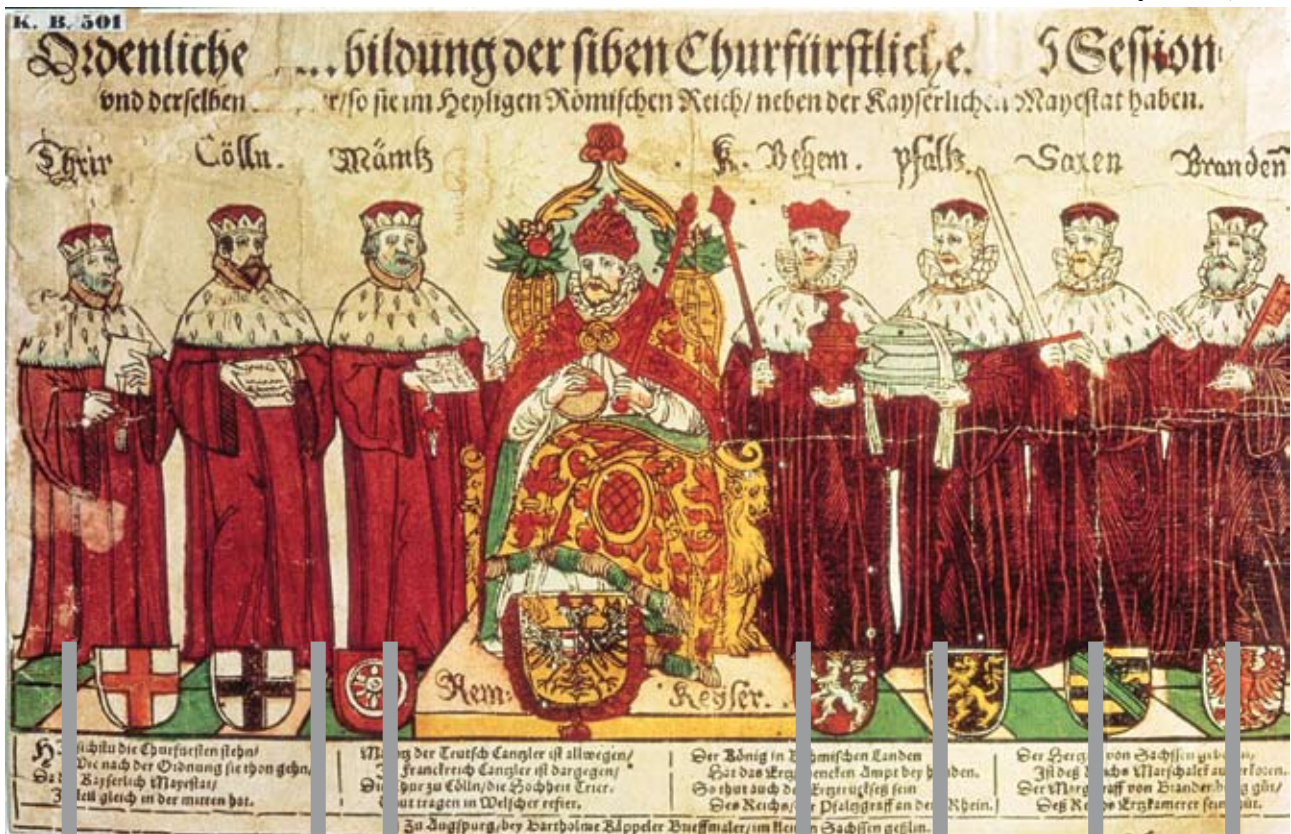 K. B. 501
Ordenliche bildung der siben Churfürstliche Session
vnd derselben /so sie im Heyligen Römischen Reich/ neben der Kayserlichen Mayestat haben.
Thrir Cölln. Mäintz K. Behem. Pfaltz Saxen Branden
Rem: Keyser.
sichstu die Churfürsten stehn/
Wie nach der Ordnung sie thon gehn/
Kayserlich Mayestat/
gleich in der mitten hat.
der Teutsch Cantzler ist allwegen/
Franckreich Cantzler ist dargegen/
zu Cölln/die Hochheit Trier.
tragen in Welscher refier.
Der König in Böhmischen Landen
Hat das Ertzschencken Ampt bey handen.
So thut auch deß Ertztruckseß sein
Des Reichs/ Pfaltzgraff an dem Rhein.
Der Hertzog von Sachssen geboren/
Ist deß Reichs Marschalck außerkoren.
Der Marggraff von Brandenburg gut/
Deß Reichs Ertzkamerer sein thut.
Zu Augspurg/bey Bartholme Käppeler Brieffmaler/im kleinen Sachssen geßlin.